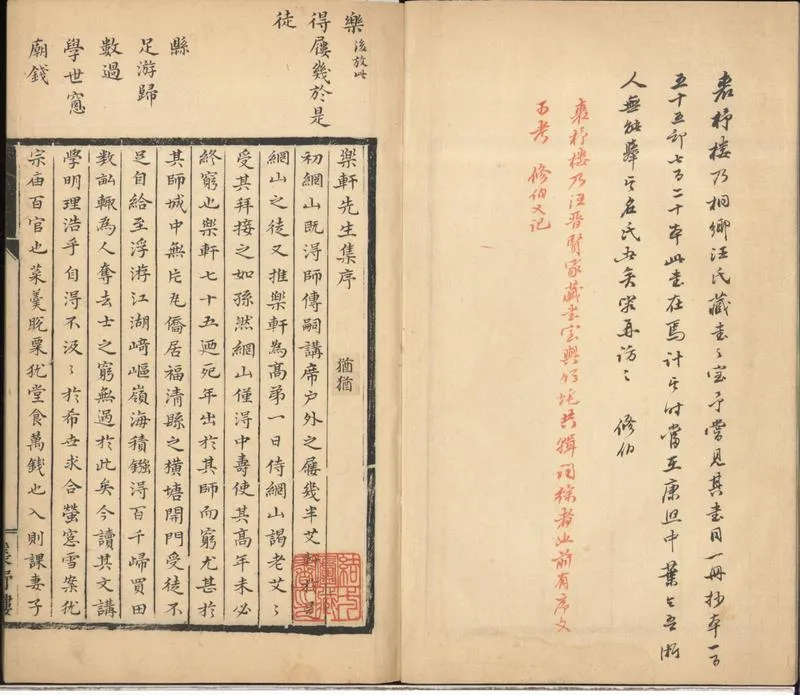 裘杼樓乃桐鄉汪氏藏書〻室予嘗見其書目一冊抄本一百
五十五部七百二十本此書在焉計其時當在康熙中葉今吾浙
人無能舉其名氏者矣當再訪〻 修伯
裘杼樓乃汪晉賢家藏書室與竹垞共輯詞綜者此前有序文
可考 修伯又記
樂 後放此
得屨幾於是
徒
縣
足游歸
數過
學世窻
廟錢
樂軒先生集序 猶猶
初網山既得師傳嗣講席户外之屨幾半艾軒
網山之徒又推樂軒為高弟一日侍網山謁老艾〻
受其拜接之如孫然網山僅得中壽使其高年未必
終窮也樂軒七十五廼死年出於其師而窮尤甚於
其師城中無片瓦僑居福清縣之橫塘開門受徒不
足自給至浮游江湖崎嶇嶺海積鏹得百千歸買田
數畝輒為人奪去士之窮無過於此矣今讀其文講
學明理浩乎自得不汲〻於希世求合螢窻雪案犹
宗庙百官也菜羹脫粟犹堂食萬錢也入則課妻子
裘杼樓